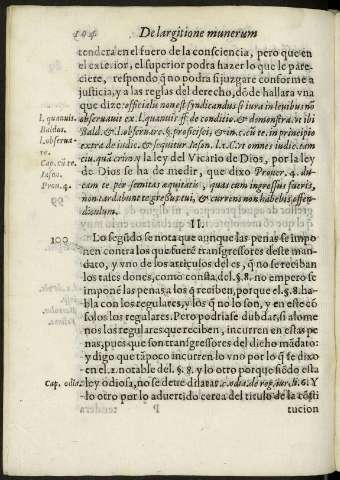 104 De largitione munerum
tendera en el fuero de la consciencia, pero que en
el exterior, el superior podra hazer lo que le pare-
ciere, respondo q̃ no podra si juzgare conforme a
justicia, y a las reglas del derecho, dõde hallara vna
que dize: officialis non est syndicandus si iura in leuibus nõ
obseruauit ex l. quanuis ff. de conditio. & demonstra. vt ibi
Bald. & l. obseruare. §. proficisci, & in c. cũ te. in principio
extra de iudic. & sequitur Iason. in
ciu. quã crim. y la ley del Vicario de Dios, por la ley
de Dios se ha de medir, que dixo Prouer. 4. du-
cam te per semitas æquitatis, quas cum ingressus fueris,
non tardabunt te gressus tui, & currens non habebis offen-
diculum.
I. quanuis.
Baldus.
l. obserua-
re.
Cap. cũ te.
Iason.
Prou. 4.
II.
100
Lo segũdo se nota que aunque las penas se impo
nen contra los que fuerẽ transgressores deste man-
dato, y vno de los articulos del es, q̃ no se reciban
los tales dones, como consta del. §. 8. no empero se
imponẽ las penas, a los q̃ reciben, porque el. §. 8. ha-
bla con los regulares, y los q̃ no lo son, y en este cõ
solos los regulares. Pero podriase dubdar, si alome
nos los regulares que reciben, incurren en estas pe-
nas, pues que son transgressores del dicho mãdato:
y digo que tãpoco incurren lo vno por lo q̃ se dixo
en el. 2. notable del. §. 8. y lo otro porque siẽdo esta
Cap. odia.
ley odiosa, no se deue dilatar. c. odia de reg. iur. li. 6. Y
lo otro por lo aduertido cerca del titulo de la cõsti
tucion